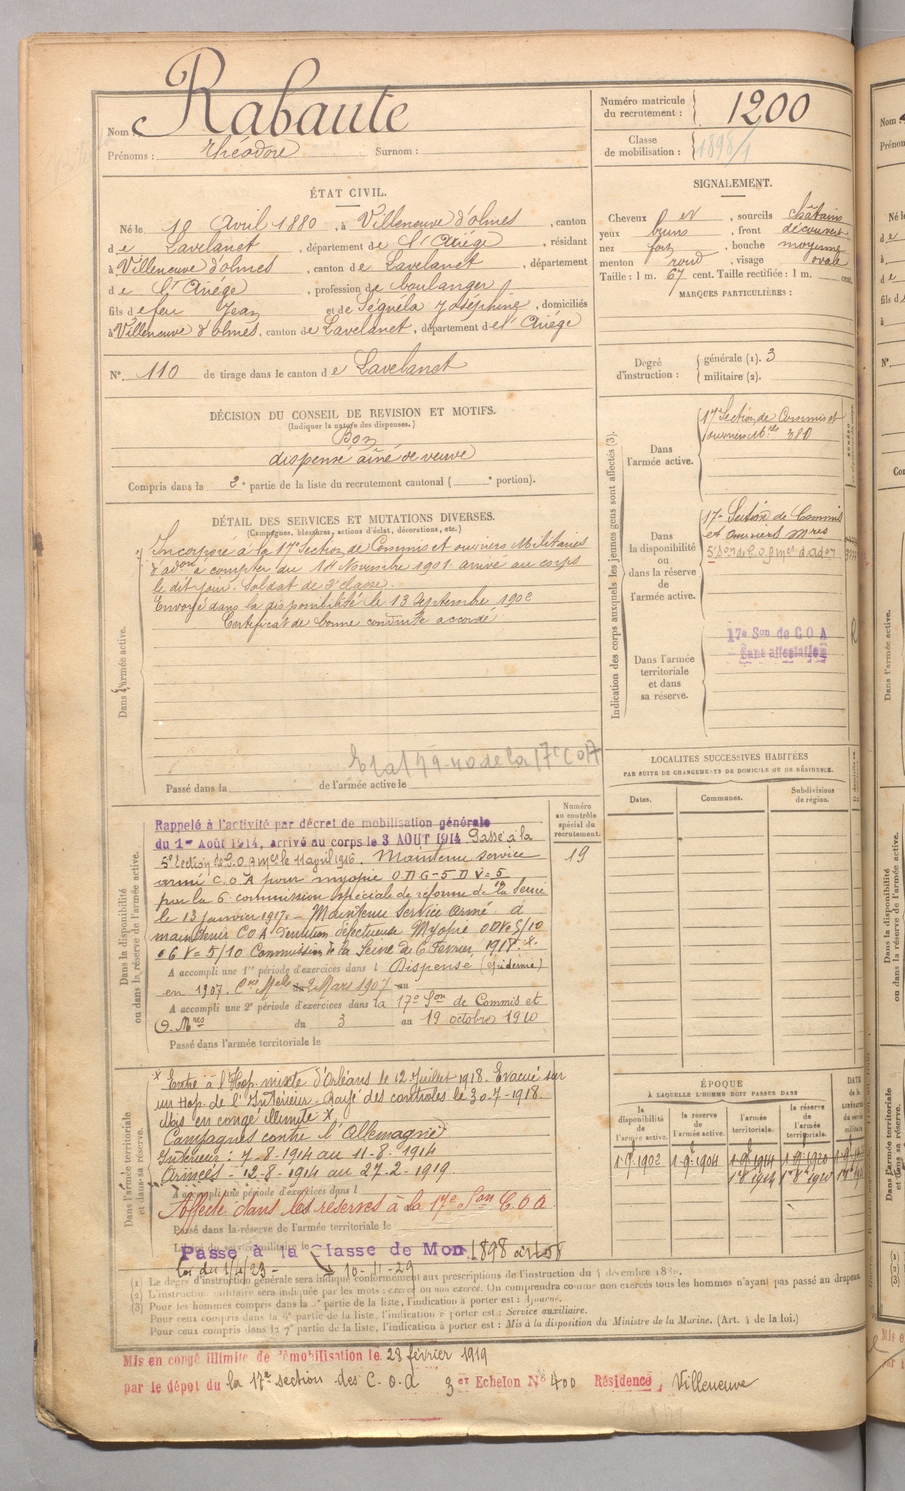 Nom Rabaute
Prénoms : Théodore Surnom :
Numéro matricule du recrutement : 1200
Classe de mobilisation : 1898/1
ÉTAT CIVIL.
Né le 10 Avril 1880, à Villeneuve d'olmes, canton
de Lavelanet, département de l'Ariége, résidant
à Villeneuve d'olmes, canton de Lavelanet, département
de l'Ariége, profession de boulanger
fils de feu Jean et de Séguéla Joséphine, domiciliés
à Villeneuve d'olmes, canton de Lavelanet, département de l'Ariége
N°. 110 de tirage dans le canton de Lavelanet
SIGNALEMENT.
Cheveux et, sourcils châtains
yeux bruns, front découvert
nez fort, bouche moyenne
menton rond, visage ovale
Taille : 1 m. 67 cent. Taille rectifiée : 1 m. cent.
MARQUES PARTICULIÈRES :
Degré d'instruction : générale (1). 3
militaire (2).
DÉCISION DU CONSEIL DE REVISION ET MOTIFS.
(Indiquer la nature des dispenses.)
Bon
dispensé aîné de veuve
Compris dans la 2e partie de la liste du recrutement cantonal ( e portion).
DÉTAIL DES SERVICES ET MUTATIONS DIVERSES.
(Campagnes, blessures, actions d'éclat, décorations, etc.)
Dans l'armée active.
Incorporé à la 17e Section de Commis et ouvriers Militaires
d'adon à compter du 14 Novembre 1901 arrivé au corps
le dit jour. Soldat de 2e classe.
Envoyé dans la disponibilité le 13 Septembre 1902
Certificat de bonne conduite accordé
de la 17e COA
Passé dans la de l'armée active le
Indication des corps auxquels les jeunes gens sont affectés (3).
Dans l'armée active.
17e Section de Commis et
ouvriers Mres 380
Dans la disponibilité ou dans la réserve de l'armée active.
17e Section de Commis
et ouvriers Mres
Dans l'armée territoriale et dans sa réserve.
17e Son de COA
Sans affectation
LOCALITES SUCCESSIVES HABITÉES
PAR SUITE DE CHANGEMENTS DE DOMICILE OU DE RÉSIDENCE.
Dates. Communes. Subdivisions de région.
Numéro au contrôle spécial du recrutement.
19
Dans la disponibilité ou dans la réserve de l'armée active.
Rappelé à l'activité par décret de mobilisation générale
du 1er Août 1914, arrivé au corps le 3 AOUT 1914 Passé à la
5e Section de C.O.A mes le 11 avril 1916. Maintenu service
armé C.O.A pour myopie ODG-5 D V=5
par la 6 commission spéciale de réforme de la Seine
le 13 janvier 1917. - Maintenu Service Armé. à
maintenir COA Dentition défectueuse Myopie OD V=5/10
OG V=5/10 Commission de la Seine du 6 Fevrier 1918. x.
A accompli une 1re période d'exercices dans l Dispense (épidémie)
en 1907. Cre Melle du 2 Mars 1907 au
A accompli une 2e période d'exercices dans la 17e Son de Commis et
O. Mres du 3 au 19 octobre 1910
Passé dans l'armée territoriale le
Dans l'armée territoriale et dans sa réserve.
x Entré à l'Hop. mixte d'Orléans le 12 Juillet 1918. Evacué sur
un Hop. de l'Intérieur. Rayé des controles le 30-7-1918.
Mis en congé illimité x.
Campagnes contre l'Allemagne
Intérieur : 7-8-1914 au 11-8-1914
Armées - 12-8-1914 au 27-2-1919.
A accompli une période d'exercices dans l
Affecté dans les réserves à la 17e Son C.O.A
Passé dans la réserve de l'armée territoriale le
Libéré du service militaire le
Passé à la Classe de Mob 1898
10-11-29
ÉPOQUE
À LAQUELLE L'HOMME DOIT PASSER DANS
la disponibilité de l'armée active. la réserve de l'armée active. l'armée territoriale. la réserve de l'armée territoriale.
1-9bre 1902 1-9bre 1904 1-9bre 1914 1-9bre 1920
(1) Le degré d'instruction générale sera indiqué conformément aux prescriptions de l'instruction du
(2) L'instruction militaire sera indiquée par les mots : exercé ou non exercé. On comprendra comme non exercés tous les hommes n'ayant pas passé au drapeau.
(3) Pour les hommes compris dans la partie de la liste, l'indication à porter est : Ajourné.
Pour ceux compris dans la partie de la liste, l'indication à porter est : Service auxiliaire.
Pour ceux compris dans la 7e partie de la liste, l'indication à porter est : Mis à la disposition du Ministre de la Marine. (Art. 4 de la loi.)
Mis en congé illimité de démobilisation le 28 février 1919
par le dépôt du la 17e section des C.O.A 3e Echelon No 400 Résidence, Villeneuve